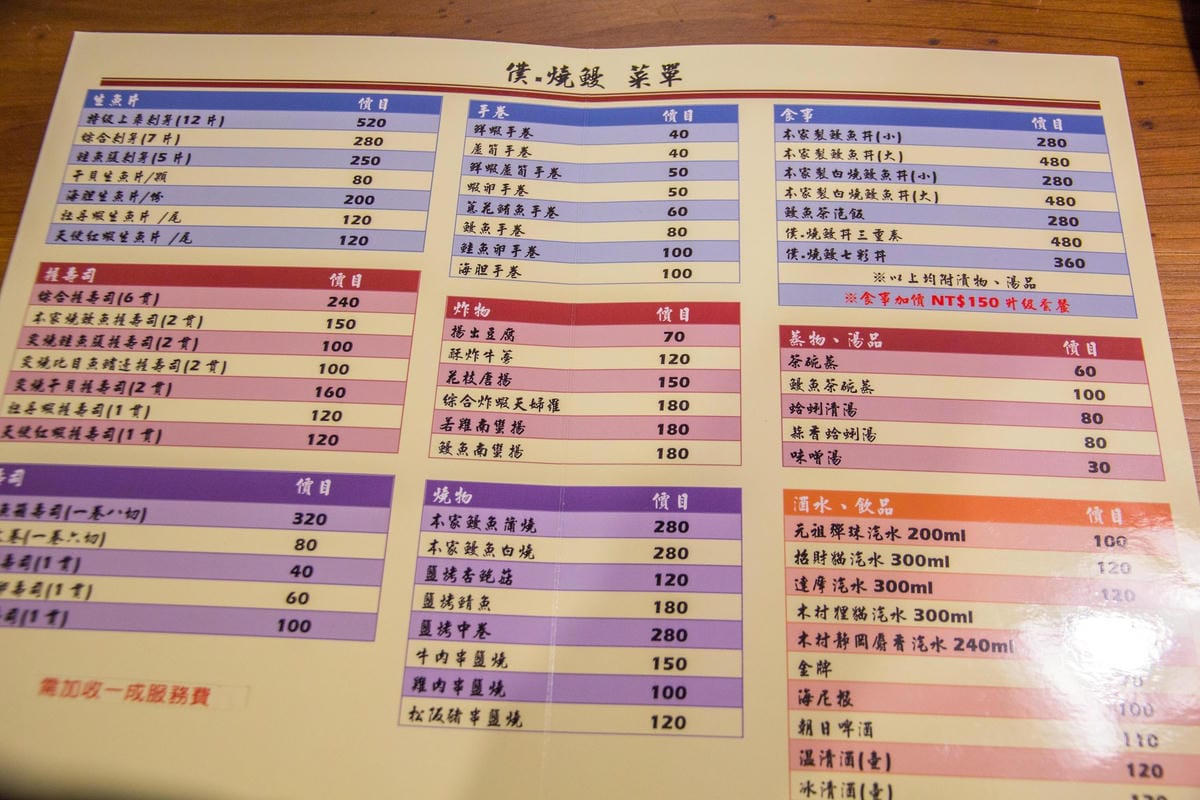 僕.燒鰻 菜單
生魚片 價目
特級上乘刺身(12片) 520
綜合刺身(7片) 280
鮭魚腹刺身(5片) 250
干貝生魚片/顆 80
海胆生魚片/份 200
牡丹蝦生魚片/尾 120
天使紅蝦生魚片/尾 120
握壽司 價目
綜合握壽司(6貫) 240
本家燒鰻魚握壽司(2貫) 150
炙燒鮭魚腹握壽司(2貫) 100
炙燒比目魚鰭邊握壽司(2貫) 100
炙燒干貝握壽司(2貫) 160
牡丹蝦握壽司(1貫) 120
天使紅蝦握壽司(1貫) 120
壽司 價目
魚箱壽司(一卷八切) 320
卷(一卷六切) 80
壽司(1貫) 40
壽司(1貫) 60
司(1貫) 100
需加收一成服務費
手卷 價目
鮮蝦手卷 40
蘆筍手卷 40
鮮蝦蘆筍手卷 50
蝦卵手卷 50
蔥花鮪魚手卷 60
鰻魚手卷 80
鮭魚卵手卷 100
海胆手卷 100
炸物 價目
揚出豆腐 70
酥炸牛蒡 120
花枝唐揚 150
綜合炸蝦天婦羅 180
若雞南蠻揚 180
鰻魚南蠻揚 180
燒物 價目
本家鰻魚蒲燒 280
本家鰻魚白燒 280
鹽烤杏鮑菇 120
鹽烤鯖魚 180
鹽烤中卷 280
牛肉串鹽燒 150
雞肉串鹽燒 100
松阪豬串鹽燒 120
食事 價目
本家製鰻魚丼(小) 280
本家製鰻魚丼(大) 480
本家製白燒鰻魚丼(小) 280
本家製白燒鰻魚丼(大) 480
鰻魚茶泡飯 280
僕.燒鰻丼三重奏 480
僕.燒鰻七彩丼 360
※以上均附漬物、湯品
※食事加價 NT$150 升級套餐
蒸物、湯品 價目
茶碗蒸 60
鰻魚茶碗蒸 100
蛤蜊清湯 80
蒜香蛤蜊湯 80
味噌湯 30
酒水、飲品 價目
元祖彈珠汽水 200ml 100
招財貓汽水 300ml 120
達摩汽水 300ml 120
木村狸貓汽水 300ml
木村靜岡麝香汽水 240ml
金牌 70
海尼根 100
朝日啤酒 110
溫清酒(壺) 120
冰清酒(壺)